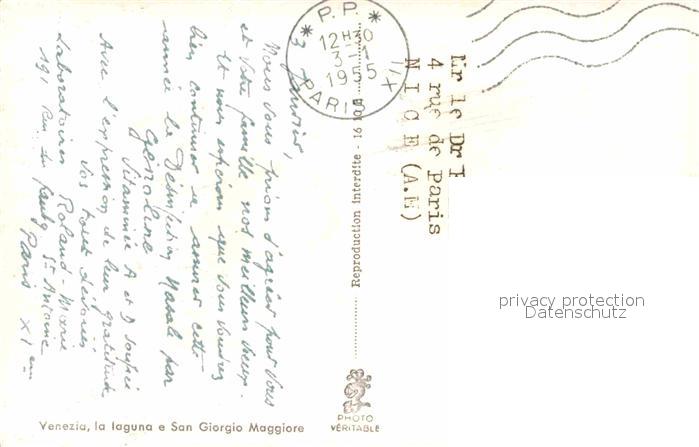 3 Janvier,
Nous vous prions d'agréer pour vous
et votre famille nos meilleurs voeux.
Et nous espérons que vous voudrez
bien continuer à assurer cette
année la Désinfection Nasale par
Génoline
Vitaminée A et D
Avec l'expression de leur gratitude
Vos tout dévoués
Laboratoires Roland-Marie
191 Rue du Faubg St Antoine
Paris XI em
P.P.
12H30
3-1
1955
PARIS XI
Mr le Dr
4 rue de Paris
N I C E (A.M)
Reproduction Interdite - 16
PHOTO
VÉRITABLE
Venezia, la laguna e San Giorgio Maggiore
privacy protection
Datenschutz